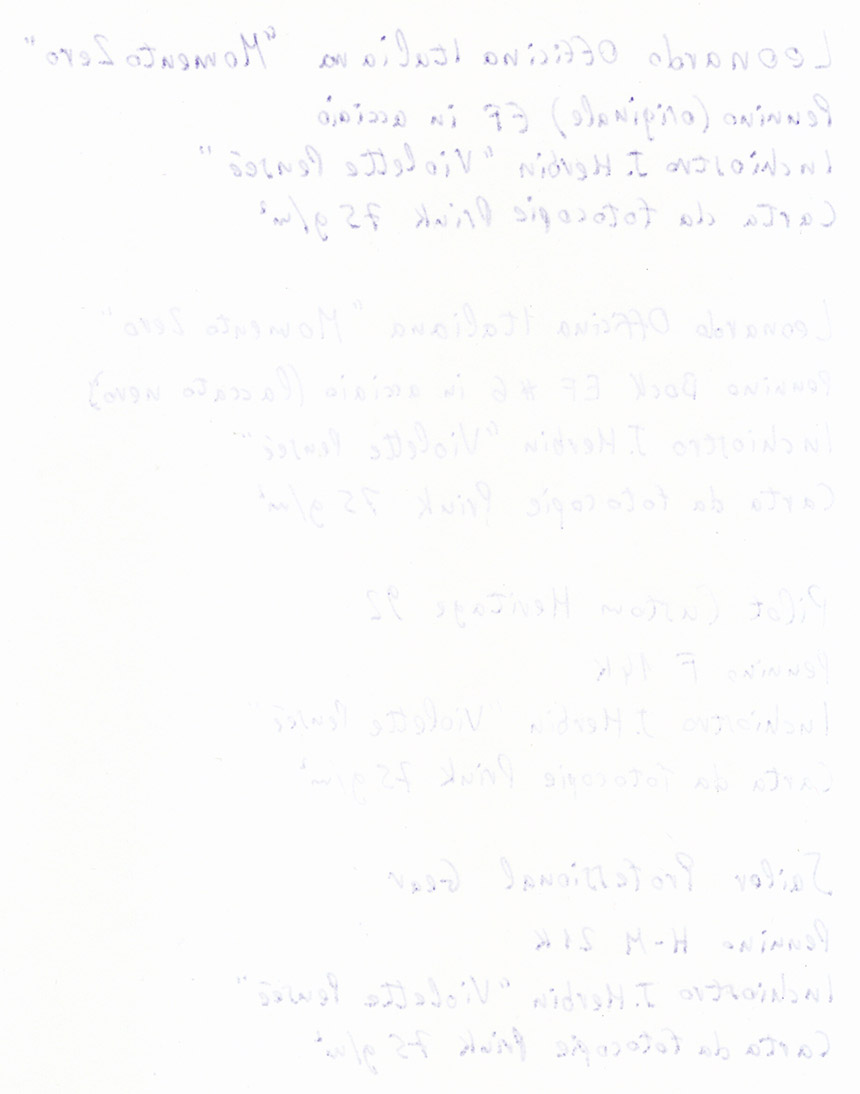 Leonardo Officina Italiana "Momento Zero"
Pennino (originale) EF in acciaio
Inchiostro J. Herbin "Violette Pensée"
Carta da fotocopie Prink 75 g/m²
Leonardo Officina Italiana "Momento Zero"
Pennino Bock EF #6 in acciaio (laccato nero)
Inchiostro J. Herbin "Violette Pensée"
Carta da fotocopie Prink 75 g/m²
Pilot Custom Heritage 92
Pennino F 14K
Inchiostro J. Herbin "Violette Pensée"
Carta da fotocopie Prink 75 g/m²
Sailor Professional Gear
Pennino H-M 21K
Inchiostro J. Herbin "Violette Pensée"
Carta da fotocopie Prink 75 g/m²